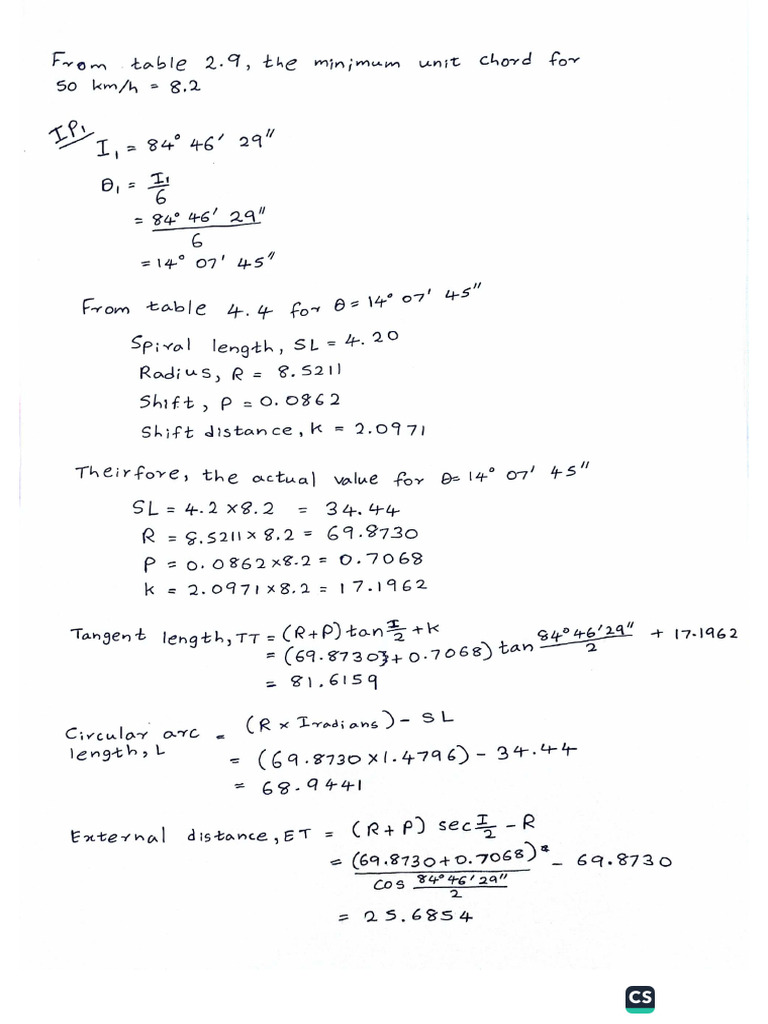 From table 2.9, the minimum unit chord for
50 km/h = 8.2
IP₁
I₁ = 84° 46′ 29″
θ₁ = I₁/6
= 84° 46′ 29″/6
= 14° 07′ 45″
From table 4.4 for θ = 14° 07′ 45″
Spiral length, SL = 4.20
Radius, R = 8.5211
Shift, P = 0.0862
Shift distance, k = 2.0971
Theirfore, the actual value for θ= 14° 07′ 45″
SL = 4.2 x 8.2 = 34.44
R = 8.5211 x 8.2 = 69.8730
P = 0.0862 x 8.2 = 0.7068
k = 2.0971 x 8.2 = 17.1962
Tangent length, TT = (R+P) tan I/2 + k
= (69.8730} + 0.7068) tan 84° 46′ 29″/2 + 17.1962
= 81.6159
Circular arc length, L = (R x I radians) - SL
= (69.8730 x 1.4796) - 34.44
= 68.9441
External distance, ET = (R+P) sec I/2 - R
= (69.8730 + 0.7068)*/cos 84° 46′ 29″/2 - 69.8730
= 25.6854
CS